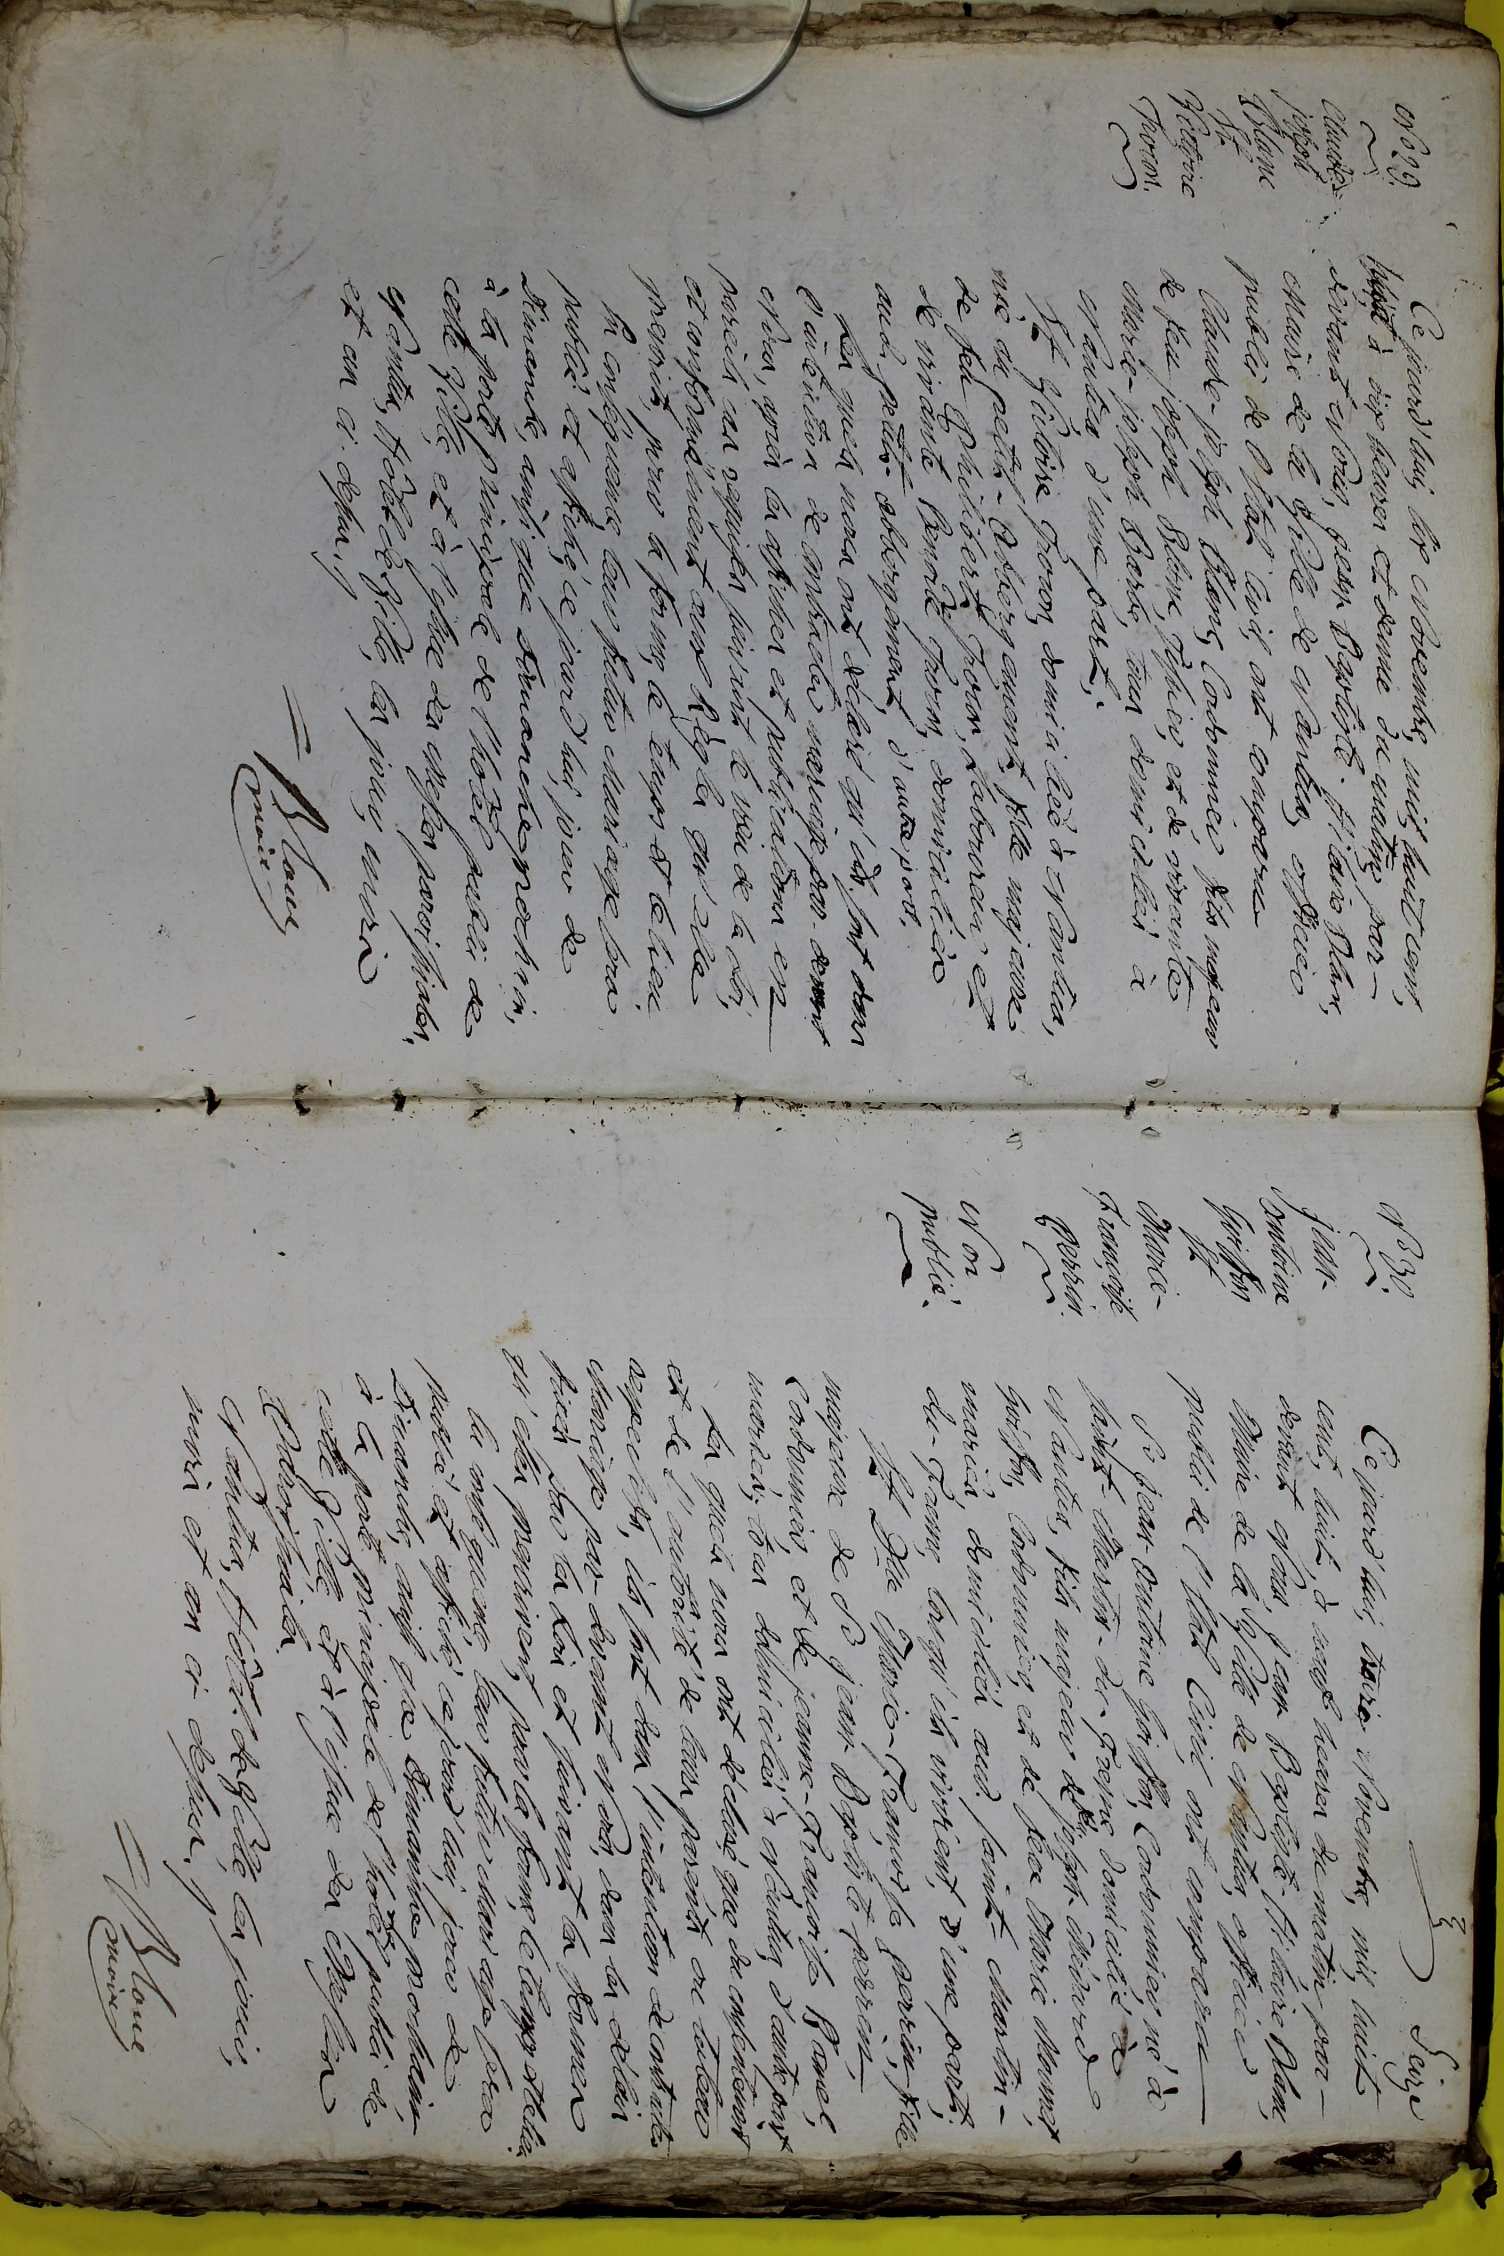 No 29.
Claude
joseph
Blanc
Et
Victoire
Poron.
Ce jourd'hui dix Novembre, mil huit cent,
huit à dix heures et demie du matin, par-
devant Nous, jean Baptiste-Hilaire Blanc,
Maire de la Ville de Nantua, officier
public de l'état Civil, ont comparu
Claude-joseph Blanc, Cordonnier, fils majeur
de feu joseph Blanc, et de vivante
Marie-joseph Barbe, tous domiciliés à
Nantua d'une part;
Et Victoire Poron, domiciliée à Nantua,
née au petit-Abbergement, fille majeure
de feu Philibert Poron, Laboureur et
de vivante Benoite Poron, domiciliés
aud. petit-abbergement, d'autre part.
Les quels nous ont déclaré qu'ils sont dans
l'intention de contracter mariage par-devant
Nous, après les affiches et publications en
pareil cas requises suivant le vœu de la Loi,
et conformément aux Règles qu'elle
prescrit, pour la forme, le temps et le lieu.
En conséquence leur futur Mariage sera
publié et affiché ce jourd'hui, jour de
Dimanche, ainsi que Dimanche prochain,
à la porte principale de l'hôtel public de
cette Ville, et à l'issue des Messes paroissiales.
Nantua, Hôtel de Ville, les jour, mois
et an ci-dessus.
Blanc
maire
Seize
No 30.
jean-
Antoine
Goiffon
Et
Marie-
Françoise
Perrin.
Non
publié.
Ce jourd'hui, treize Novembre, mil huit
cent, huit, à neuf heures du matin par-
devant Nous, jean Baptiste-Hilaire Blanc,
Maire de la Ville de Nantua, officier
public de l'état Civil, ont comparu
Sr jean-Antoine Goiffon, Cordonnier, né à
saint-Martin-du-Fresne domicilié à
Nantua, fils majeur de feu joseph-
Goiffon, Cordonnier, et de feue Marie Monnet,
mariés, domiciliés aud. saint-Martin-
du-Fresne, lorsqu'ils vivoient, D'une part;
Et Dlle Marie-Françoise perrin, fille
majeure de Sr jean Baptiste perrin,
Cordonnier, et de jeanne-Françoise
mariés, tous domiciliés à Nantua, d'autre part
Les quels nous ont déclaré que du consentement
et de l'autorité de leurs parents ou tuteur
respectifs, ils sont dans l'intention de contracter
Mariage par-devant Nous, dans les délais
fixés par les Lois et suivant les formes
qu'elles prescrivent, pour la forme, le temps et le lieu.
En conséquence leur futur Mariage sera
publié et affiché ce jourd'hui, jour de
Dimanche, ainsi que Dimanche prochain
à la porte principale de l'hôtel public de
cette Ville et à l'issue des Messes
Paroissiales.
Nantua, Hôtel de Ville les jour,
mois et an ci-dessus.
Blanc
maire